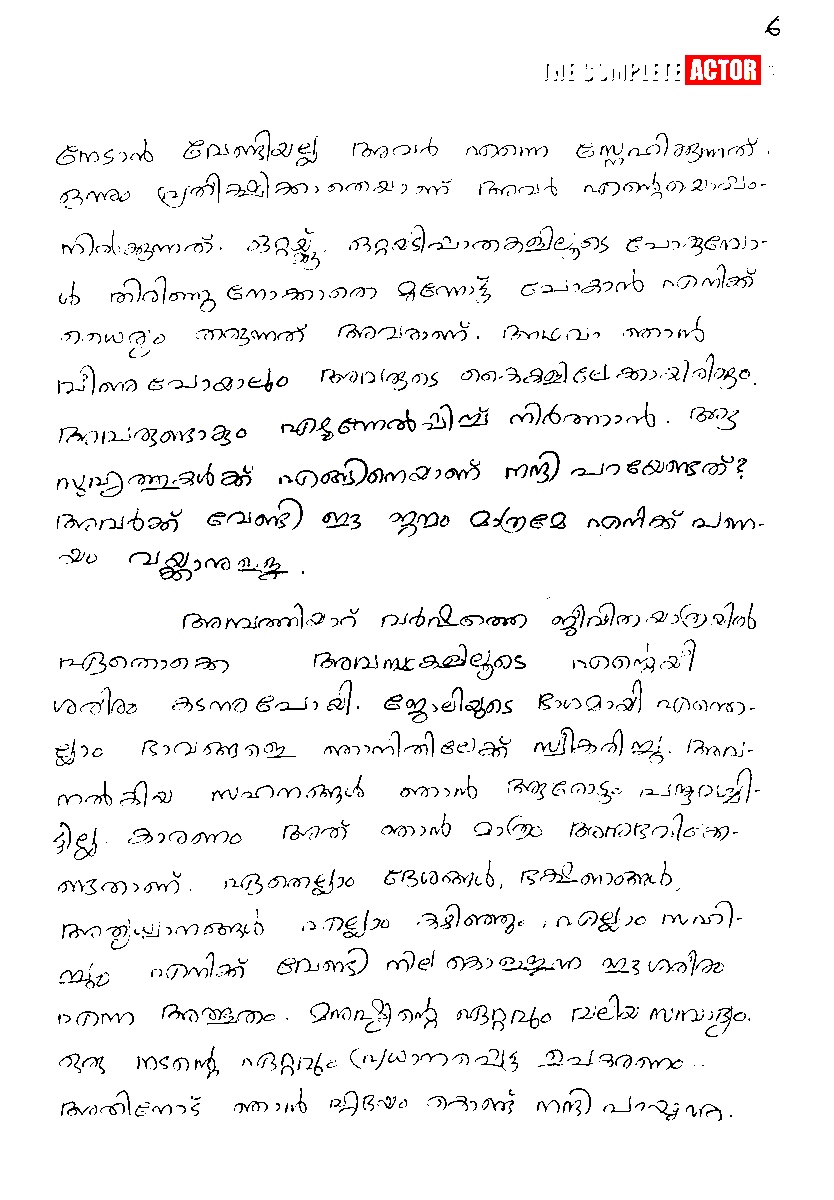 6
THE COMPLETE ACTOR
നേടാൻ വേണ്ടിയല്ല അവർ എന്നെ സ്നേഹിക്കുന്നത്.
ഒന്നും പ്രതീക്ഷിക്കാതെയാണ് അവർ എന്റെയൊപ്പം
നിൽക്കുന്നത്. ഒറ്റയ്ക്കു ഒറ്റയടിപ്പാതകളിലൂടെ പോകുമ്പോ-
ൾ തിരിഞ്ഞു നോക്കാതെ മുന്നോട്ട് പോകാൻ എനിക്ക്
ധൈര്യം തരുന്നത് അവരാണ്. അഥവാ ഞാൻ
വീണുപോയാലും അവരുടെ കൈകളിലേക്കായിരിക്കും.
അവരുണ്ടാകും എഴുന്നേൽപ്പിച്ച് നിർത്താൻ. ആ
സുഹൃത്തുക്കൾക്ക് എങ്ങിനെയാണ് നന്ദി പറയേണ്ടത്?
അവർക്ക് വേണ്ടി ഈ ജന്മം മാത്രമേ എനിക്ക് പണ-
യം വയ്ക്കാനുള്ളൂ.
അമ്പത്തിയാറ് വർഷത്തെ ജീവിതയാത്രയിൽ
ഏതൊക്കെ അവസ്ഥകളിലൂടെ എന്റെയീ
ശരീരം കടന്നുപോയി. ജോലിയുടെ ഭാഗമായി എന്തെ-
ല്ലാം ഭാവങ്ങളെ ഞാനിതിലേക്ക് സ്വീകരിച്ചു. അവ-
നൽകിയ സഹനങ്ങൾ ഞാൻ ആരോടും പങ്കുവെച്ചി-
ട്ടില്ല. കാരണം അത് ഞാൻ മാത്രം അനുഭവിക്കേ-
ണ്ടതാണ്. ഏതെല്ലാം ദേശങ്ങൾ, ഭക്ഷണങ്ങൾ,
അത്യദ്ധ്വാനങ്ങൾ എല്ലാം കഴിഞ്ഞും, എല്ലാം സഹി-
ച്ചും എനിക്ക് വേണ്ടി നിലകൊള്ളുന്ന ഈ ശരീരം
എന്ന അത്ഭുതം. മനുഷ്യന്റെ ഏറ്റവും വലിയ സമ്പാദ്യം.
ഒരു നടന്റെ ഏറ്റവും പ്രധാനപ്പെട്ട ഉപകരണം..
അതിനോട് ഞാൻ ഹൃദയം കൊണ്ട് നന്ദി പറയുന്നു.